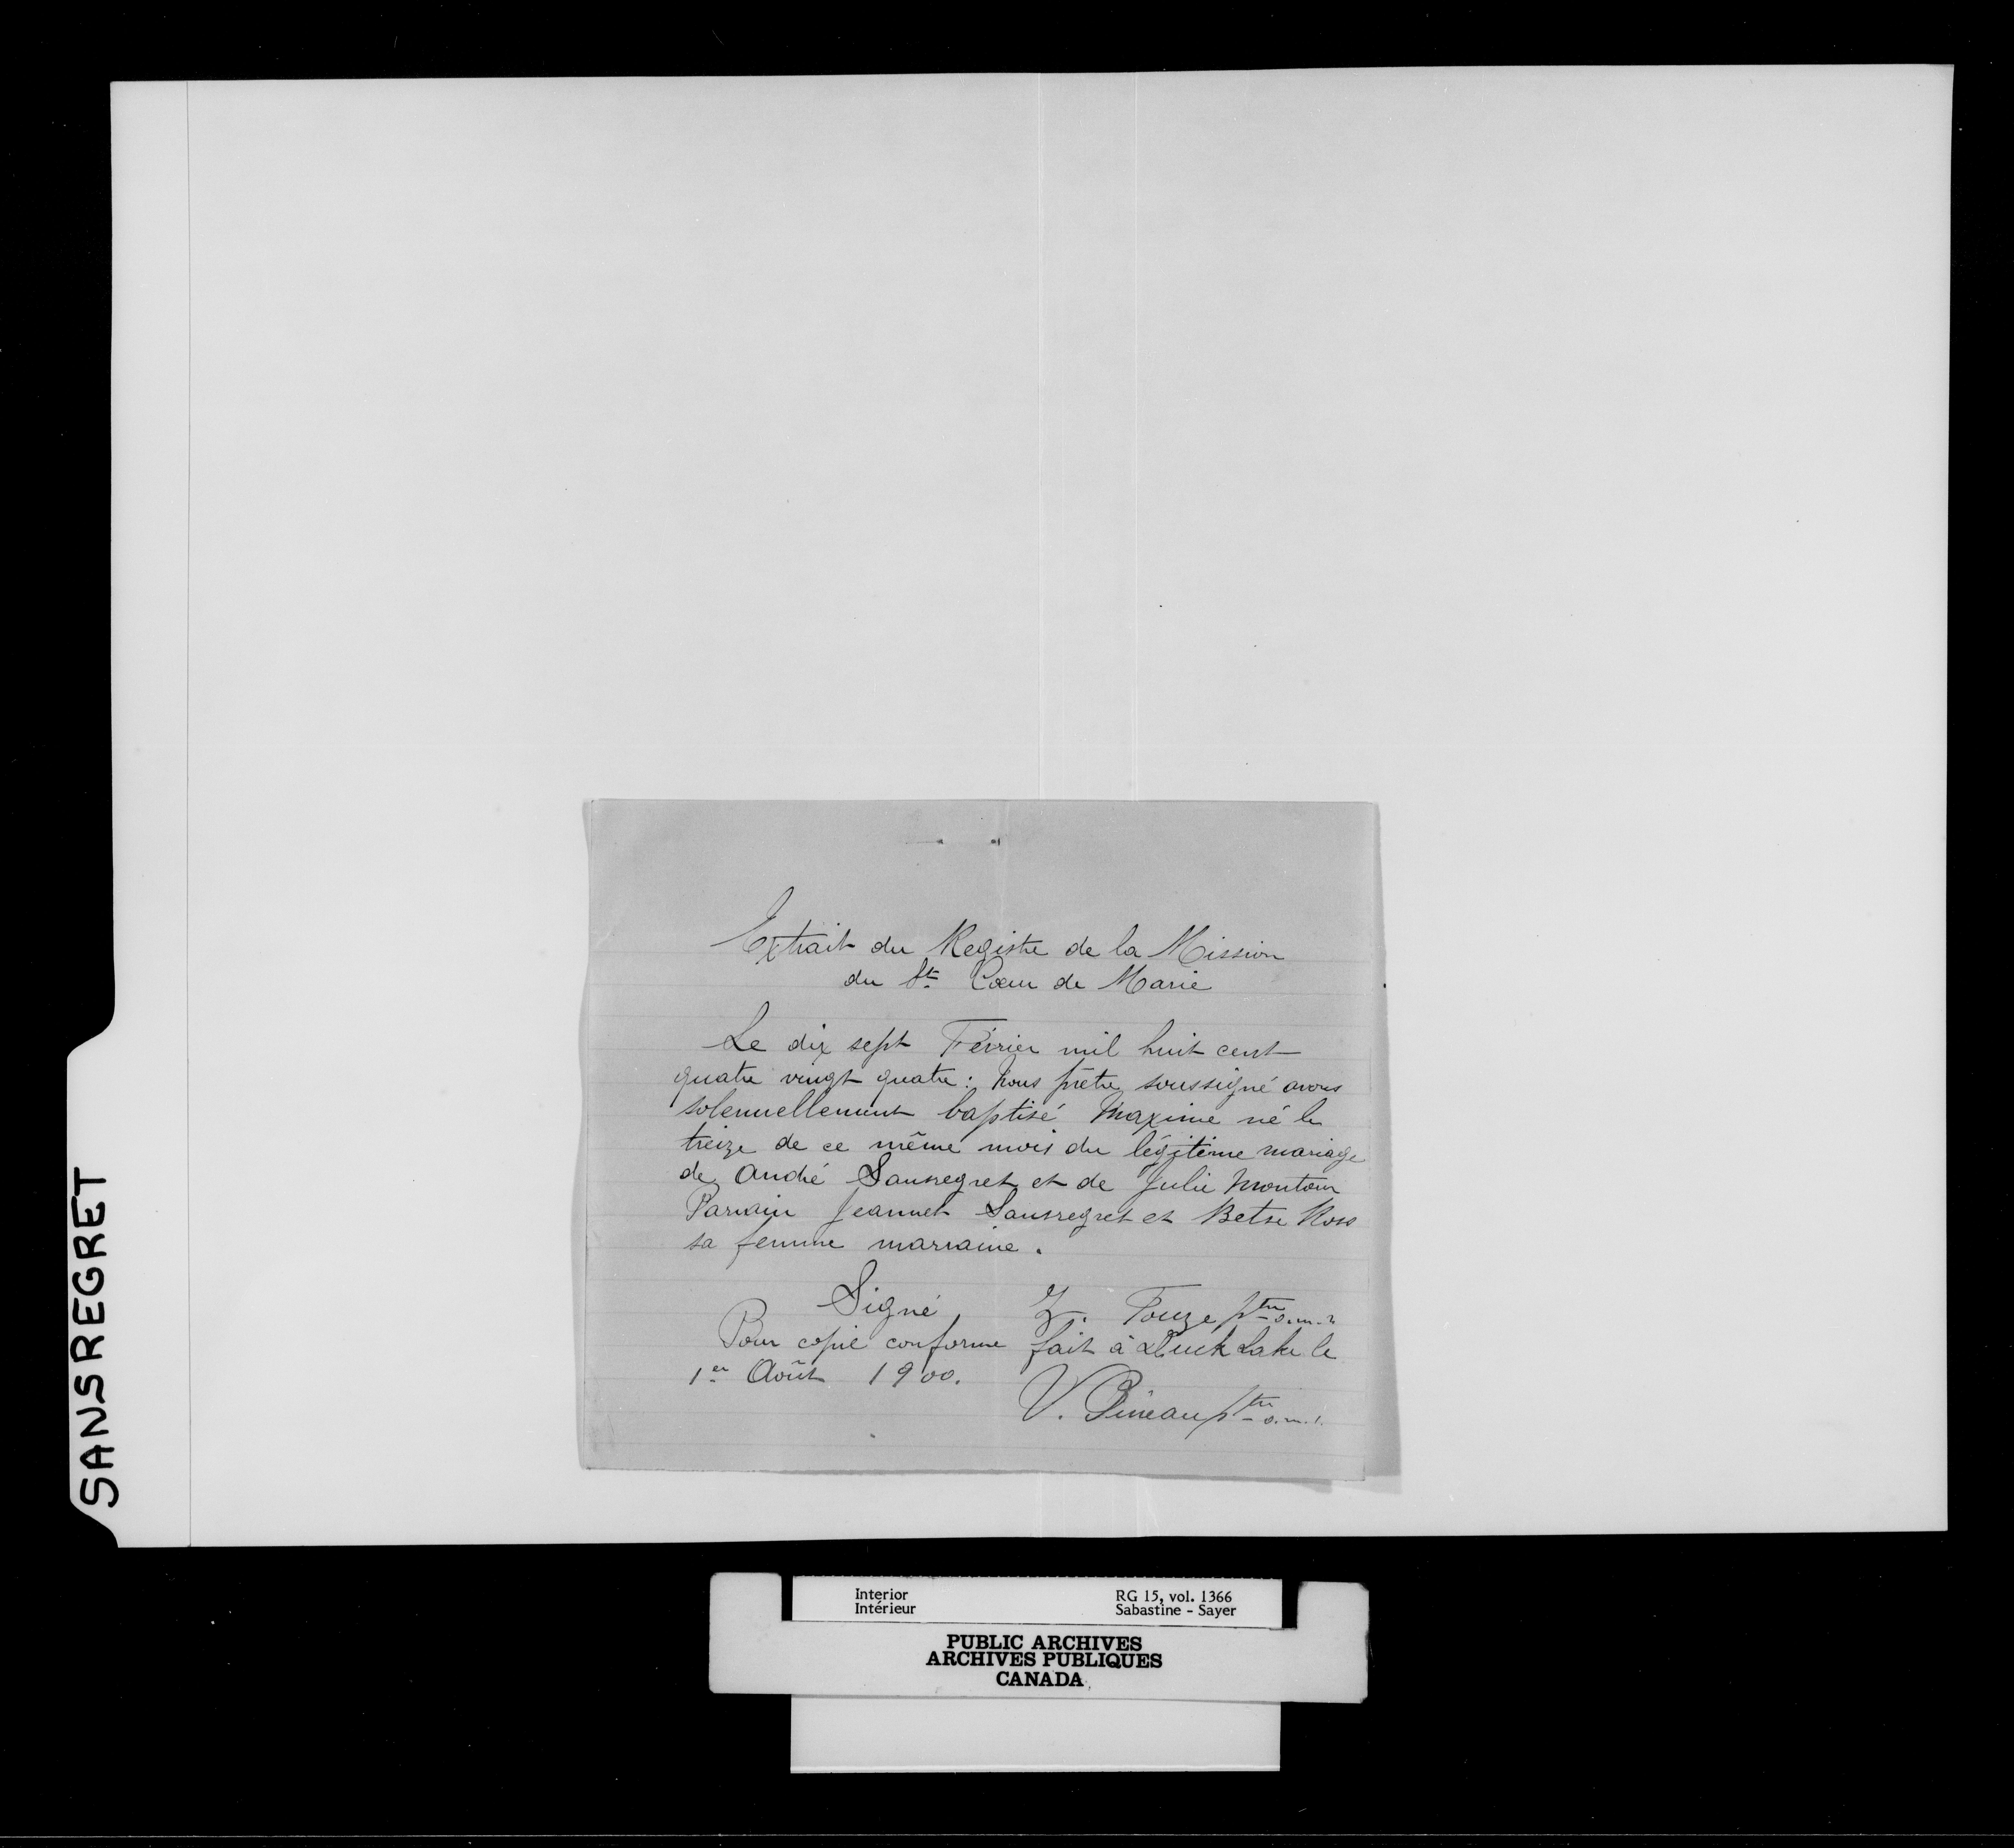 SANSREGRET
Extrait du Registre de la Mission
du St. Cœur de Marie
Le dix sept Février mil huit cent
quatre vingt quatre : Nous prêtre soussigné avons
solennellement baptisé Maxime né le
treize de ce même mois du légitime mariage
de André Sansregret et de Julie Montour
Parrain Jeannet Sansregret et Betsé Ross
sa femme marraine.
Signé Z. Touze ptre o.m.i.
Pour copie conforme fait à Duck Lake le
1er Août 1900.
V. Pineau ptre o.m.i.
Interior
Intérieur
RG 15, vol. 1366
Sabastine - Sayer
PUBLIC ARCHIVES
ARCHIVES PUBLIQUES
CANADA